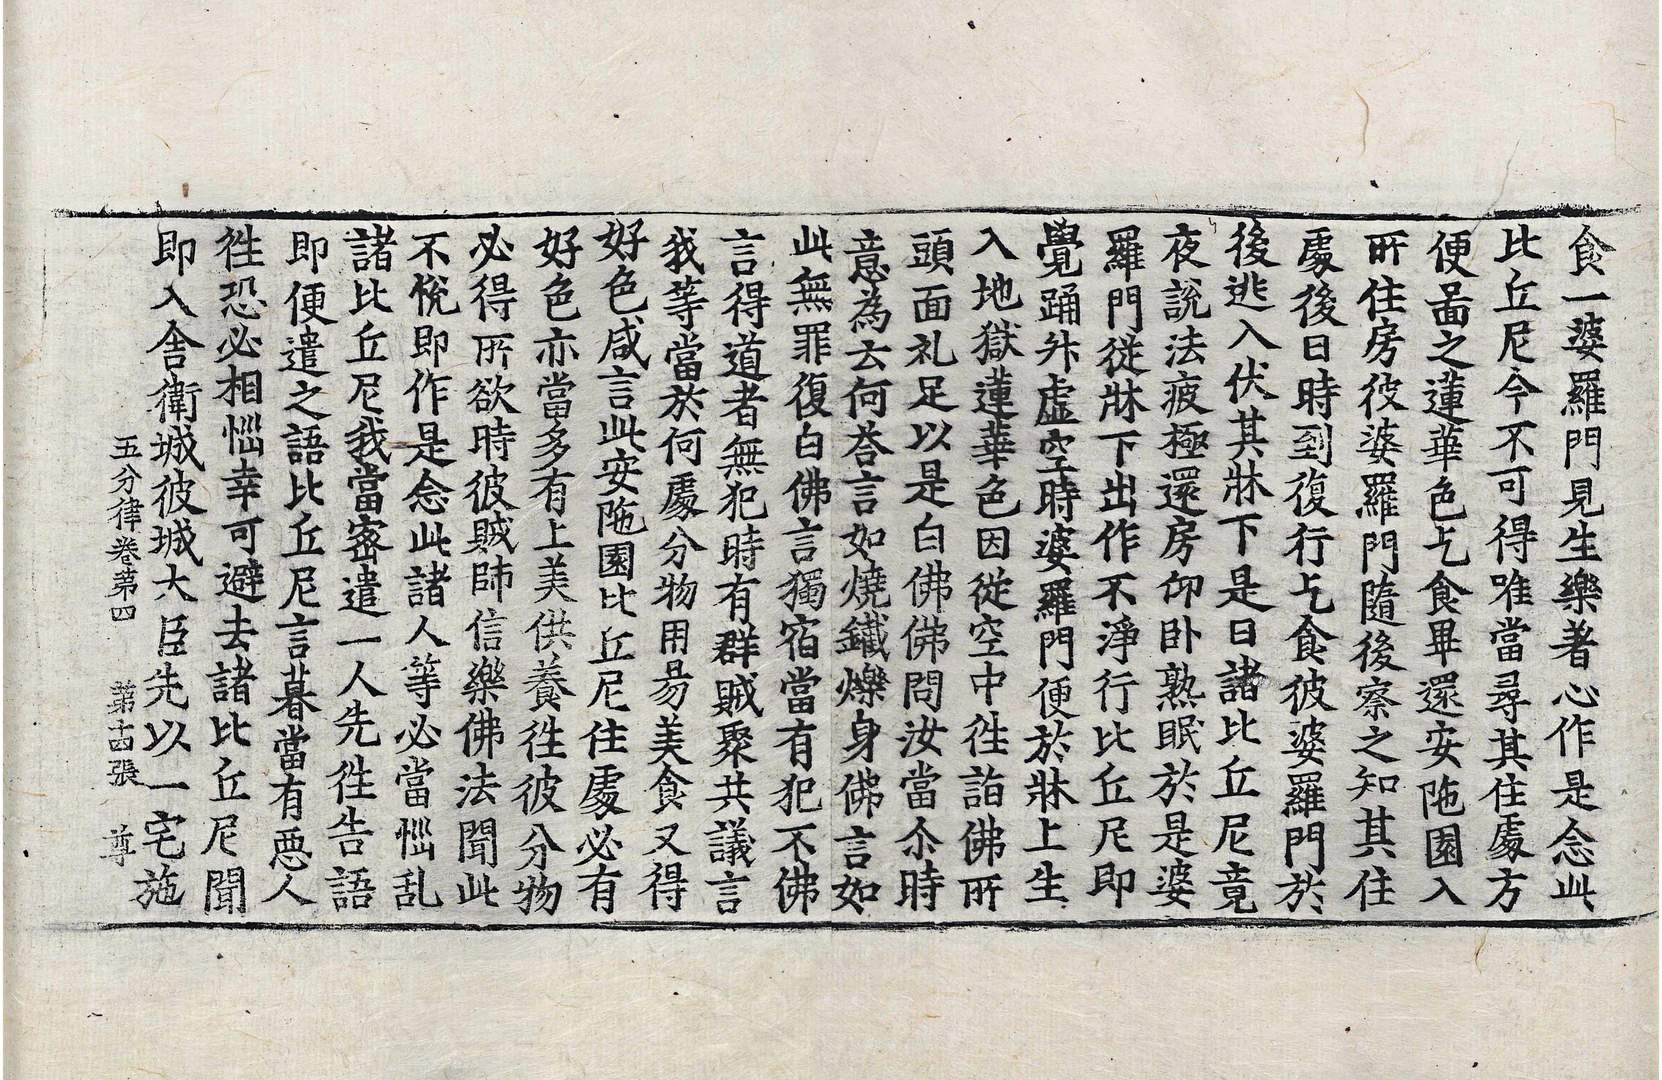 食一婆羅門見生樂著心作是念此
比丘尼今不可得唯當尋其住處方
便啚之蓮華色乞食畢還安陁園入
所住房彼婆羅門隨後察之知其住
處後日時到復行乞食彼婆羅門於
後逃入伏其牀下是日諸比丘尼竟
夜說法疲極還房仰卧熟眠於是婆
羅門從牀下出作不淨行比丘尼即
覺踊升虛空時婆羅門便於牀上生
入地獄蓮華色因從空中徃詣佛所
頭面礼足以是白佛佛問汝當尒時
意為云何荅言如燒鐵爍身佛言如
此無罪復白佛言獨宿當有犯不佛
言得道者無犯時有群賊聚共議言
我等當於何處分物用易美食又得
好色咸言此安陁園比丘尼住處必有
好色亦當多有上美供養徃彼分物
必得所欲時彼賊帥信樂佛法聞此
不悅即作是念此諸人等必當惱乱
諸比丘尼我當密遣一人先徃告語
即便遣之語比丘尼言暮當有惡人
徃恐必相惱幸可避去諸比丘尼聞
即入舍衛城彼城大臣先以一宅施
五分律卷第四 第十四張 尊